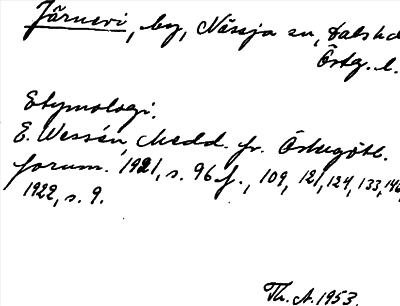 Järnevi, by, Nässja sn, Dals hd
Östg. l.
Etymologi.
E. Wessén, Medd. fr. Östergötl.
fornm. 1921, s. 96 f., 109, 121, 124, 133, 146,
1922, s. 9.
Th. A. 1953.